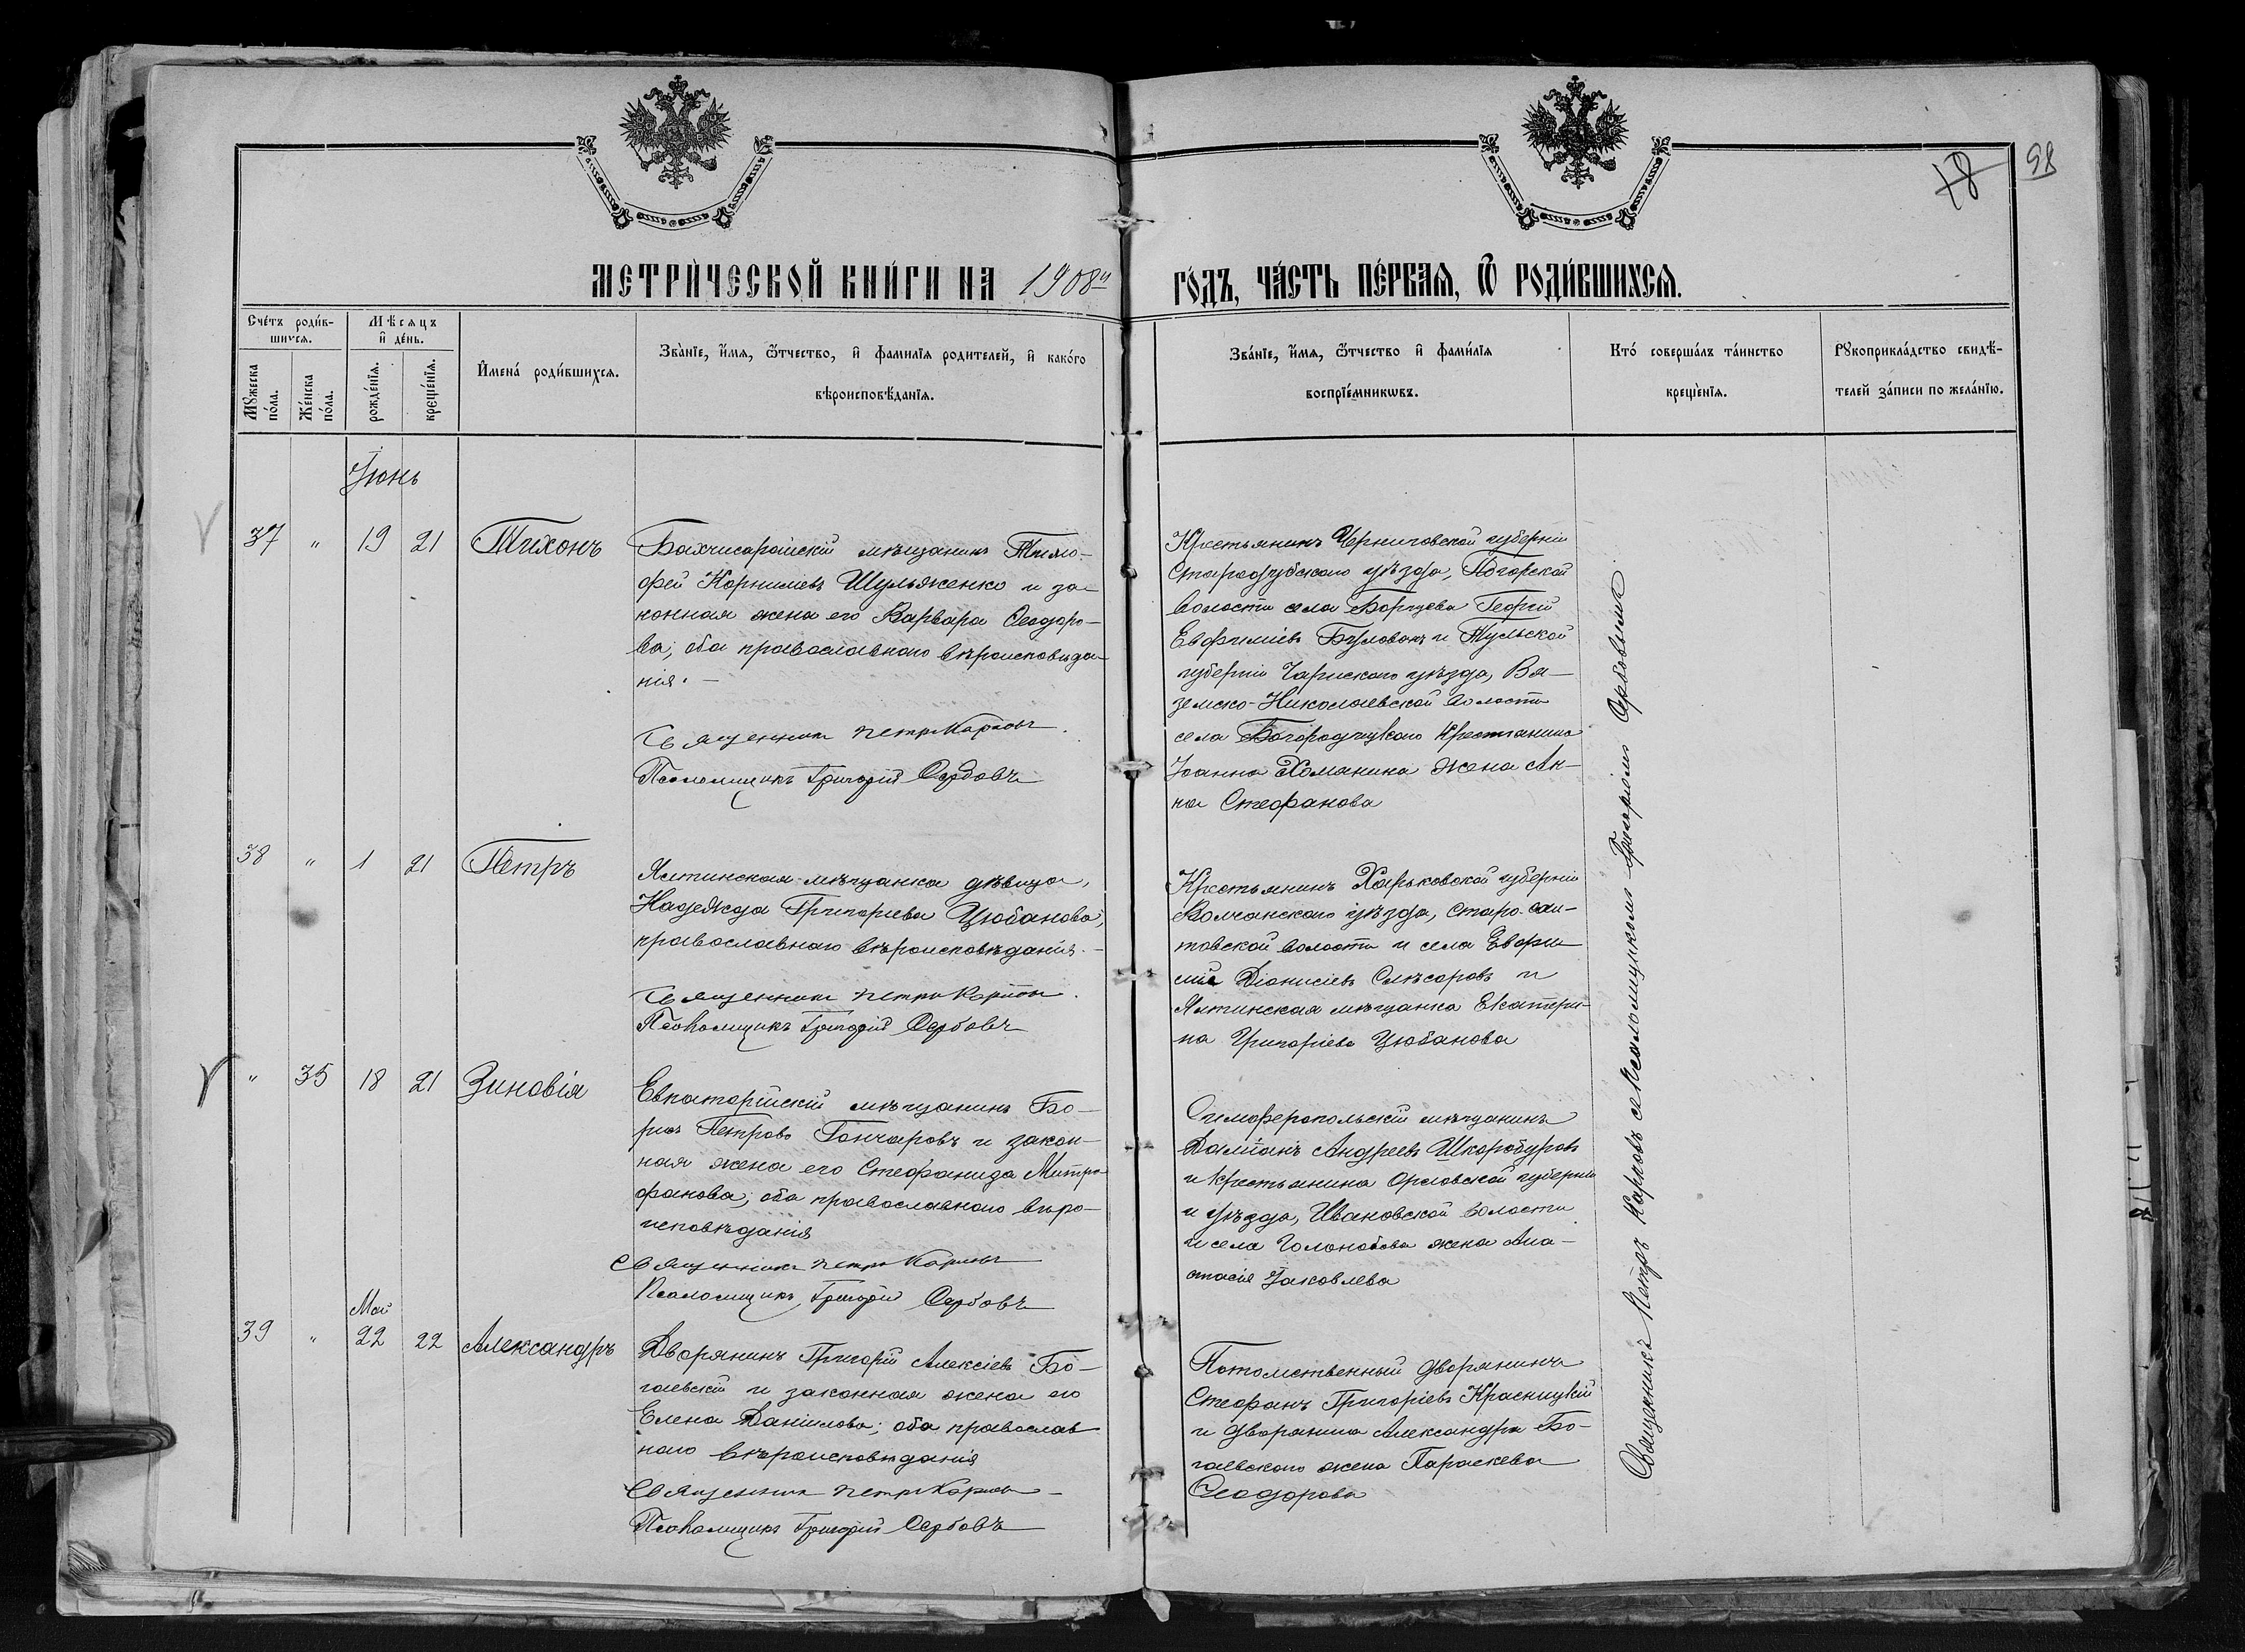 98
18
МЕТРИ́ЧЕСКОЙ КНИ́ГИ НА 1908й
ГО́ДЪ, ЧА́СТЬ ПЕ́РВАЯ, Ѿ РОДИ́ВШИХСЯ.
Сче́тъ роди́в-
шихся.
Мѣ́сяцъ
и҆ де́нь.
Мꙋжеска
по́ла.
Же́нска
по́ла.
рожде́нїя.
креще́нїя.
И҆мена̀ роди́вшихся.
Зва́нїе, и҆́мя, ѻ҆́тчество, и҆ фами́лїя родителей, и҆ како́го
вѣроисповѣ́данїя.
Зва́нїе, и҆́мя, ѻ҆́тчество и҆ фами́лїя
воспрїе́мникѡвъ.
Кто́ соверша́лъ та́инство
креще́нїя.
Рꙋкоприкла́дство свидѣ́-
телей за́писи по жела́нїю.
Іюнь
37 " 19 21 Тихонъ
Бахчисарайскій мѣщанинъ Тимо-
фей Корнилiевъ Шульженко и за-
конная жена его Варвара Ѳеодоро-
ва; оба православнаго вѣроисповѣда-
нія. -
Священникъ Петръ Карповъ.
Псаломщикъ Григорій Сербовъ
Крестьянинъ Черниговской губерніи
Стародубскаго уѣзда, Погорской
волости села Борщева Георгій
Евфиміевъ Буловокъ и Тульской
губерніи Чернскаго уѣзда, Вя-
земско-Николаевской волости
села Богородицкаго крестьянина
Іоанна Хоманина жена Ан-
на Стефанова
38 " 1 21 Петръ
Ялтинская мѣщанка дѣвица,
Надежда Григорьева Цюбанова,
православнаго вѣроисповѣданія. -
Священникъ Петръ Карповъ.
Псаломщикъ Григорій Сербовъ
Крестьянинъ Харьковской губерніи
Волчанскаго уѣзда, Старо-сал-
товской волости и села Евфи-
мій Діонисіевъ Слѣсаровъ и
Ялтинская мѣщанка Екатери-
на Григоріева Цюбанова
" 35 18 21 Зиновія
Евпаторійскій мѣщанинъ Бо-
рисъ Петровъ Гончаровъ и закон-
ная жена его Стефанида Митро-
фанова; оба православнаго вѣро-
исповѣданія
Священникъ Петръ Карповъ
Псаломщикъ Григорій Сербовъ
Симферопольскій мѣщанинъ
Даміанъ Андреевъ Шкоробуровъ
и крестьянина Орловской губерніи
и уѣзда, Ивановской волости
и села жена Ана-
стасія Іаковлева
Май
39 " 22 22 Александръ
Дворянинъ Григорій Алексіевъ Бо-
гаевскій и законная жена его
Елена Даніилова; оба православ-
наго вѣроисповѣданія
Священникъ Петръ Карповъ
Псаломщикъ Григорій Сербовъ
Потомственный дворянинъ
Стефанъ Григоріевъ Красницкій
и дворянина Александра Бо-
гаевскаго жена Параскева
Ѳеодорова
Священникъ Петръ Карповъ съ псаломщикомъ Григоріемъ Сербовымъ